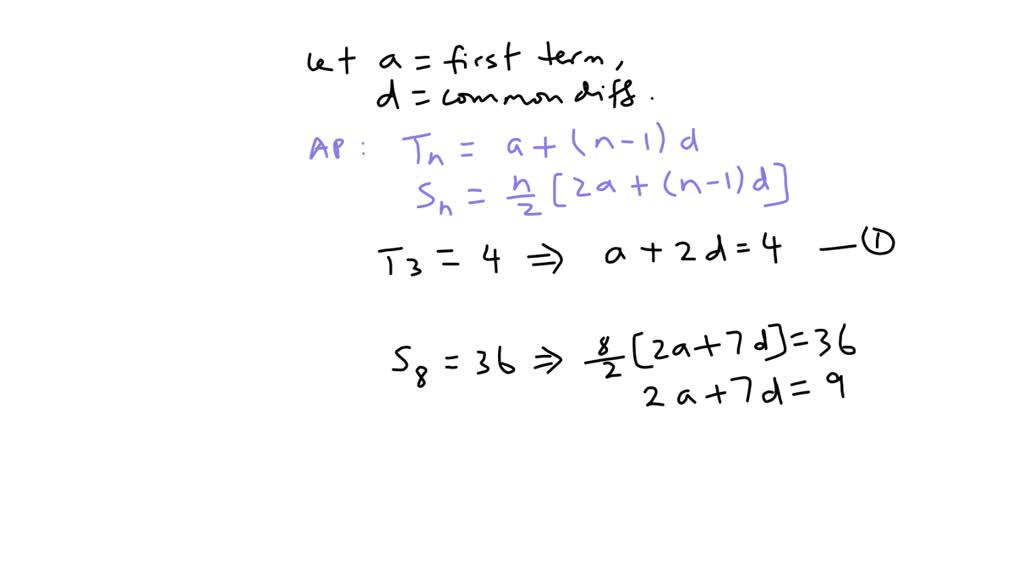 let a = first term,
d = common diff.
AP: Tn = a + (n-1) d
Sn = n/2 [2a + (n-1) d]
T3 = 4 ⇒ a + 2d = 4 — ①
S8 = 36 ⇒ 8/2 [2a + 7d] = 36
2a + 7d = 9